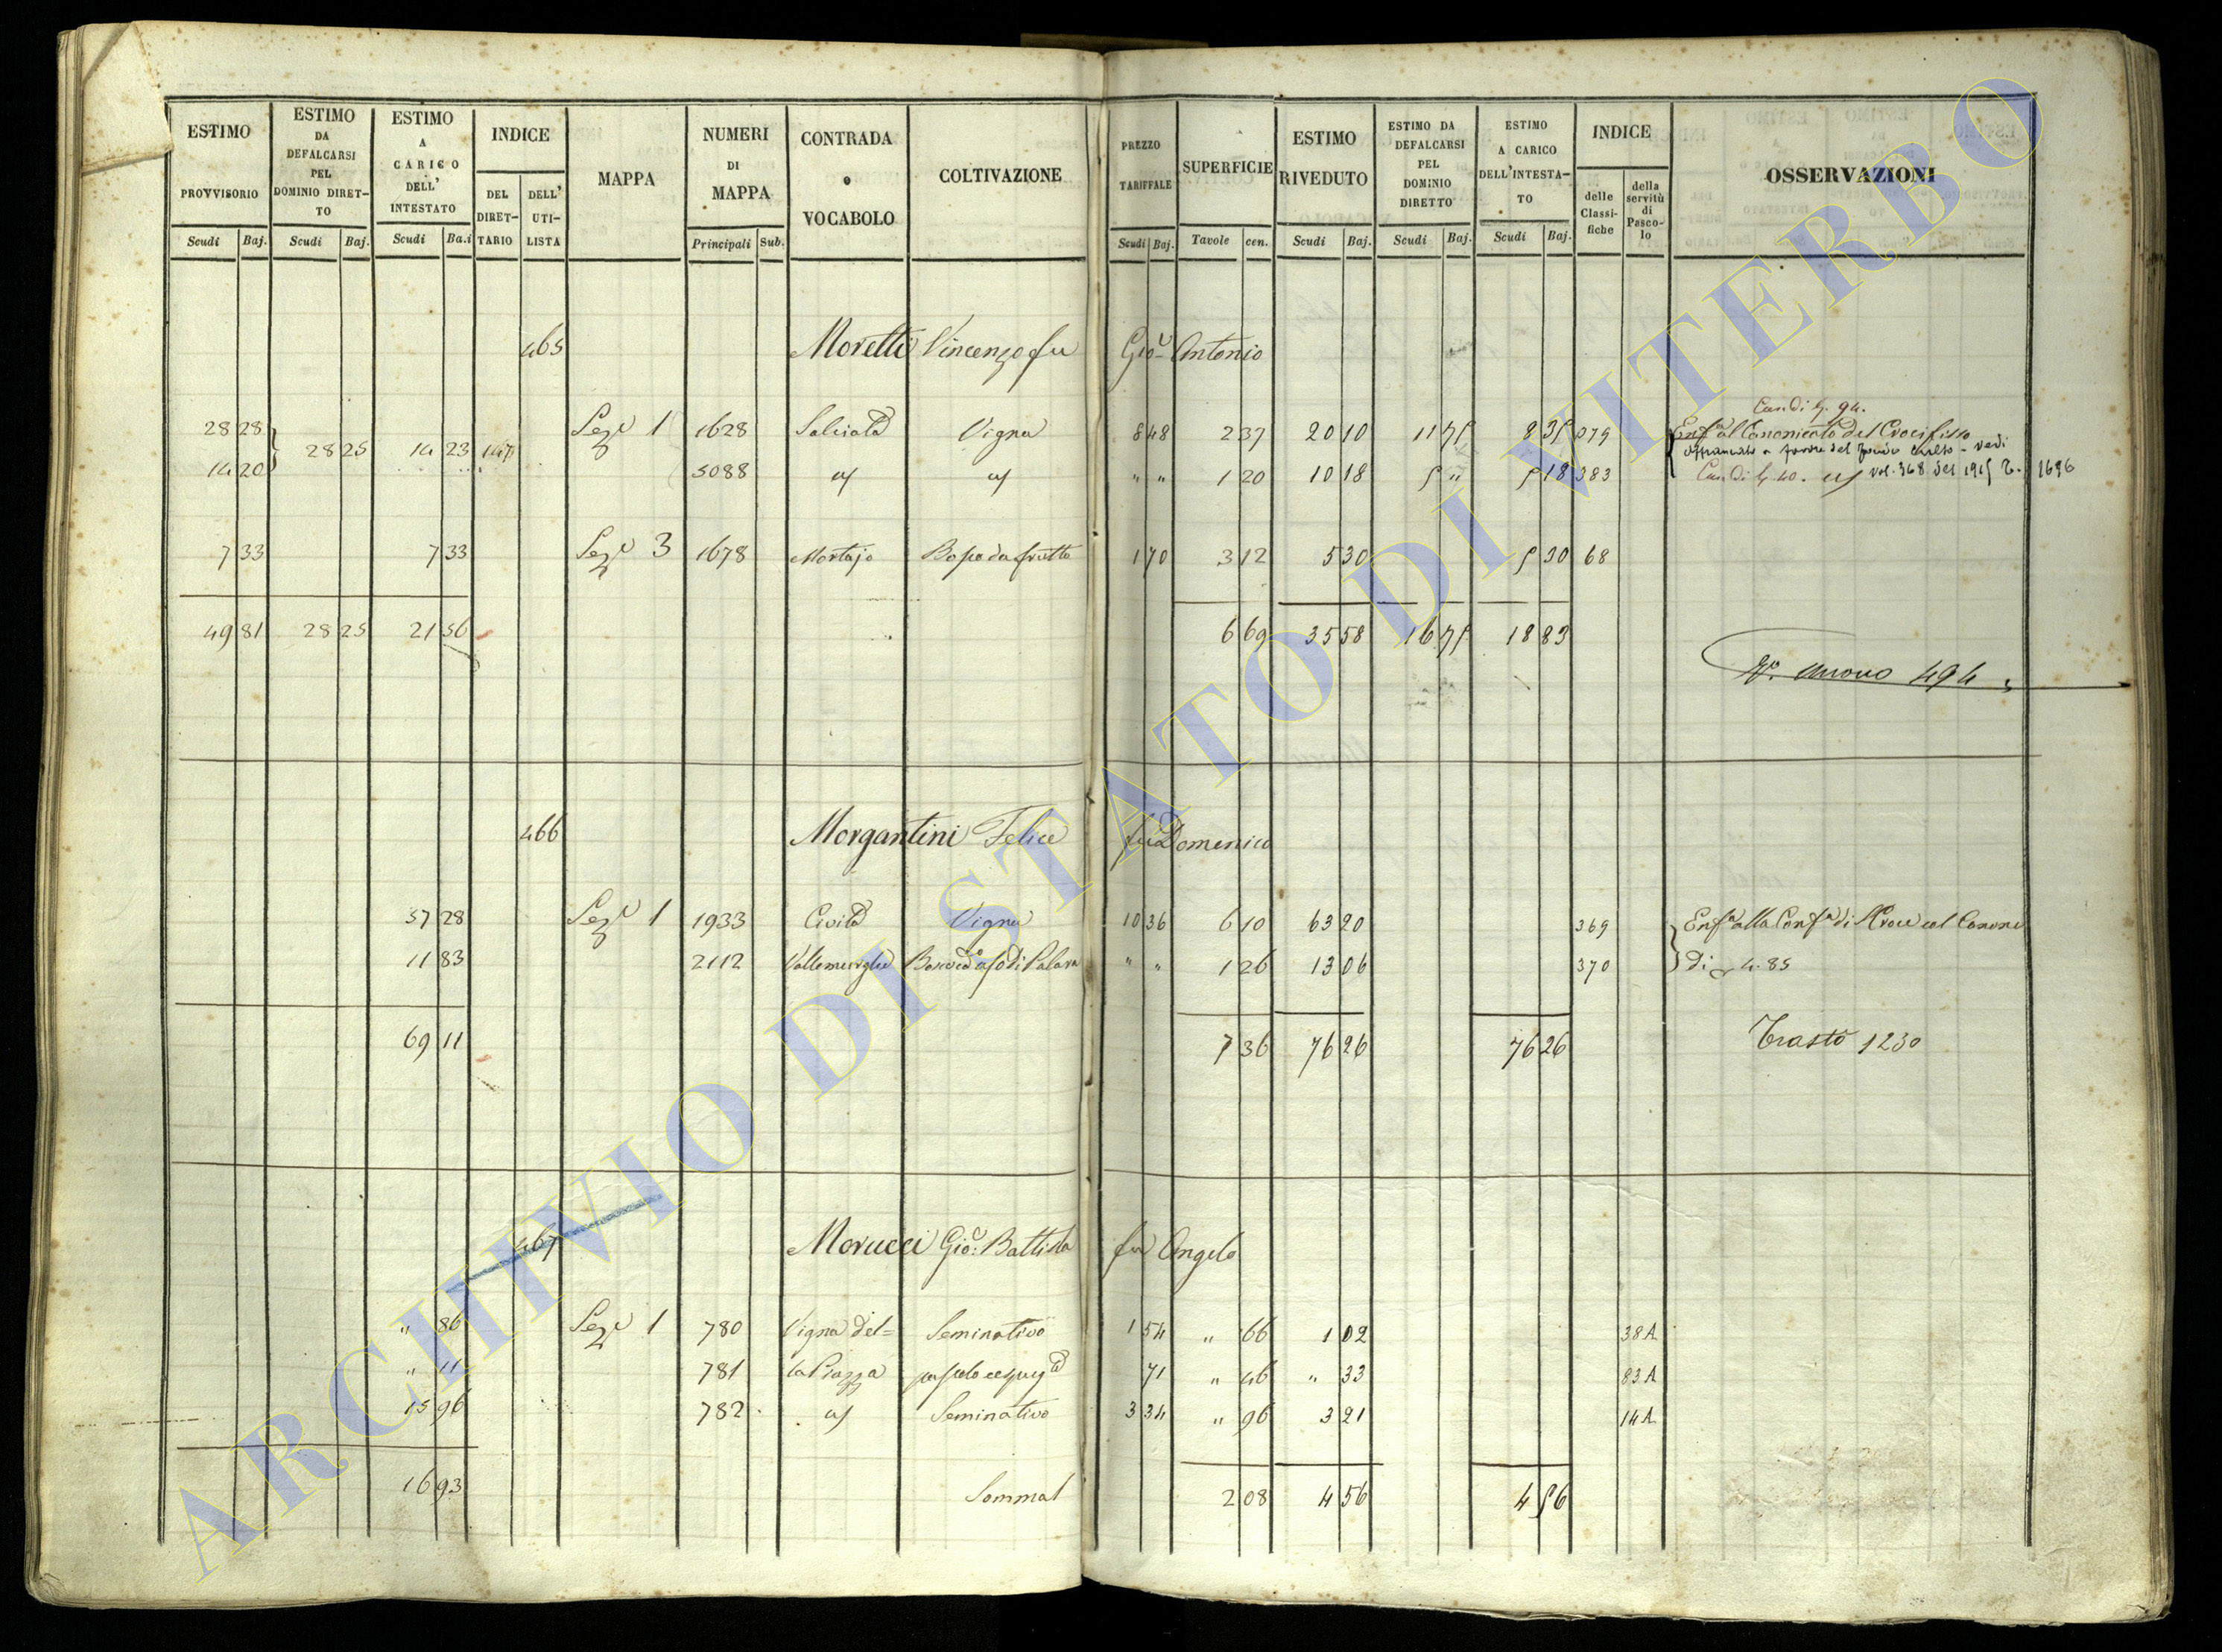 ESTIMO PROVVISORIO Scudi Baj. | ESTIMO DA DEFALCARSI PEL DOMINIO DIRET-TO Scudi Baj. | ESTIMO A CARICO DELL' INTESTATO Scudi Ba.i | INDICE DEL DIRET-TARIO | DELL' UTI-LISTA | MAPPA | NUMERI DI MAPPA Principali Sub. | CONTRADA o VOCABOLO | COLTIVAZIONE | PREZZO TARIFFALE Scudi Baj. | SUPERFICIE Tavole cen. | ESTIMO RIVEDUTO Scudi Baj. | ESTIMO DA DEFALCARSI PEL DOMINIO DIRETTO Scudi Baj. | ESTIMO A CARICO DELL'INTESTA-TO Scudi Baj. | INDICE delle Classi-fiche | della servitù di Pasco-lo | OSSERVAZIONI
465 Moretti Vincenzo fu Gio: Antonio
28 28 | 28 25 | 14 23 | 147 | Sez.e 1 | 1628 | Vigna | 8 48 | 2 37 | 20 10 | 11 75 | 8 35 | 379 | Enf.a al Canonicato del Crocifisso
vedi
14 20 | 5088 | " " | 1 20 | 10 18 | 5 " | 5 18 | 383 | vol. 368 del 1915 1696
7 33 | 7 33 | Sez.e 3 | 1678 | Mortajo | Bosco da frutto | 1 70 | 3 12 | 5 30 | 5 30 | 68
49 81 | 28 25 | 21 56 | 6 69 | 35 58 | 16 75 | 18 83
494
466 Morgantini Felice fu Domenico
57 28 | Sez.e 1 | 1933 | Civita | Vigna | 10 36 | 6 10 | 63 20 | 369 | Enf.a alla Conf.a di S Croce col Canone
11 83 | 2112 | " " | 1 26 | 13 06 | 370 | di 4.85
69 11 | 7 36 | 76 26 | 76 26 | Trasto 1230
467 Morucci Gio: Battista fu Angelo
" 86 | Sez.e 1 | 780 | Vigna del= | Seminativo | 1 54 | " 66 | 1 02 | 38 A
" 11 | 781 | la Piazza | 71 | " 46 | " 33 | 83 A
15 96 | 782 | Seminativo | 3 34 | " 96 | 3 21 | 14 A
16 93 | Sommat | 2 08 | 4 56 | 4 56
ARCHIVIO DI STATO DI VITERBO